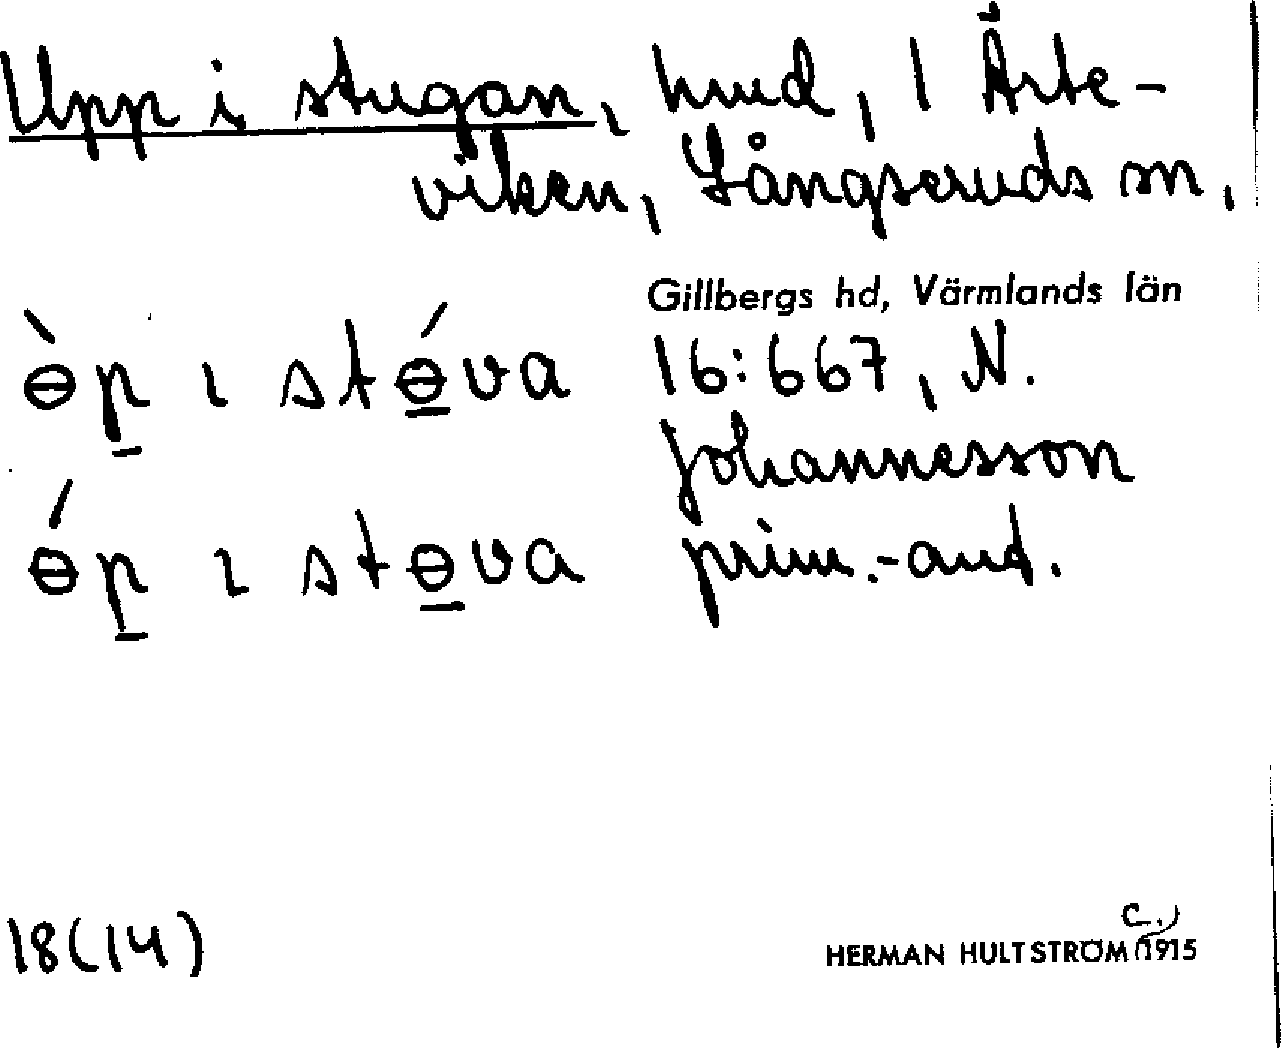 Upp i stugan, hmd, 1 Ärte-
viken, Långseruds sn,
Gillbergs hd, Värmlands län
ɵ̀p̱ ɩ stɵ̱́va 16:667, N.
Johannesson
ɵ́p̱ ɩ stɵ̱va prim.-ant.
18(14)
HERMAN HULTSTRÖM (c.) 1915